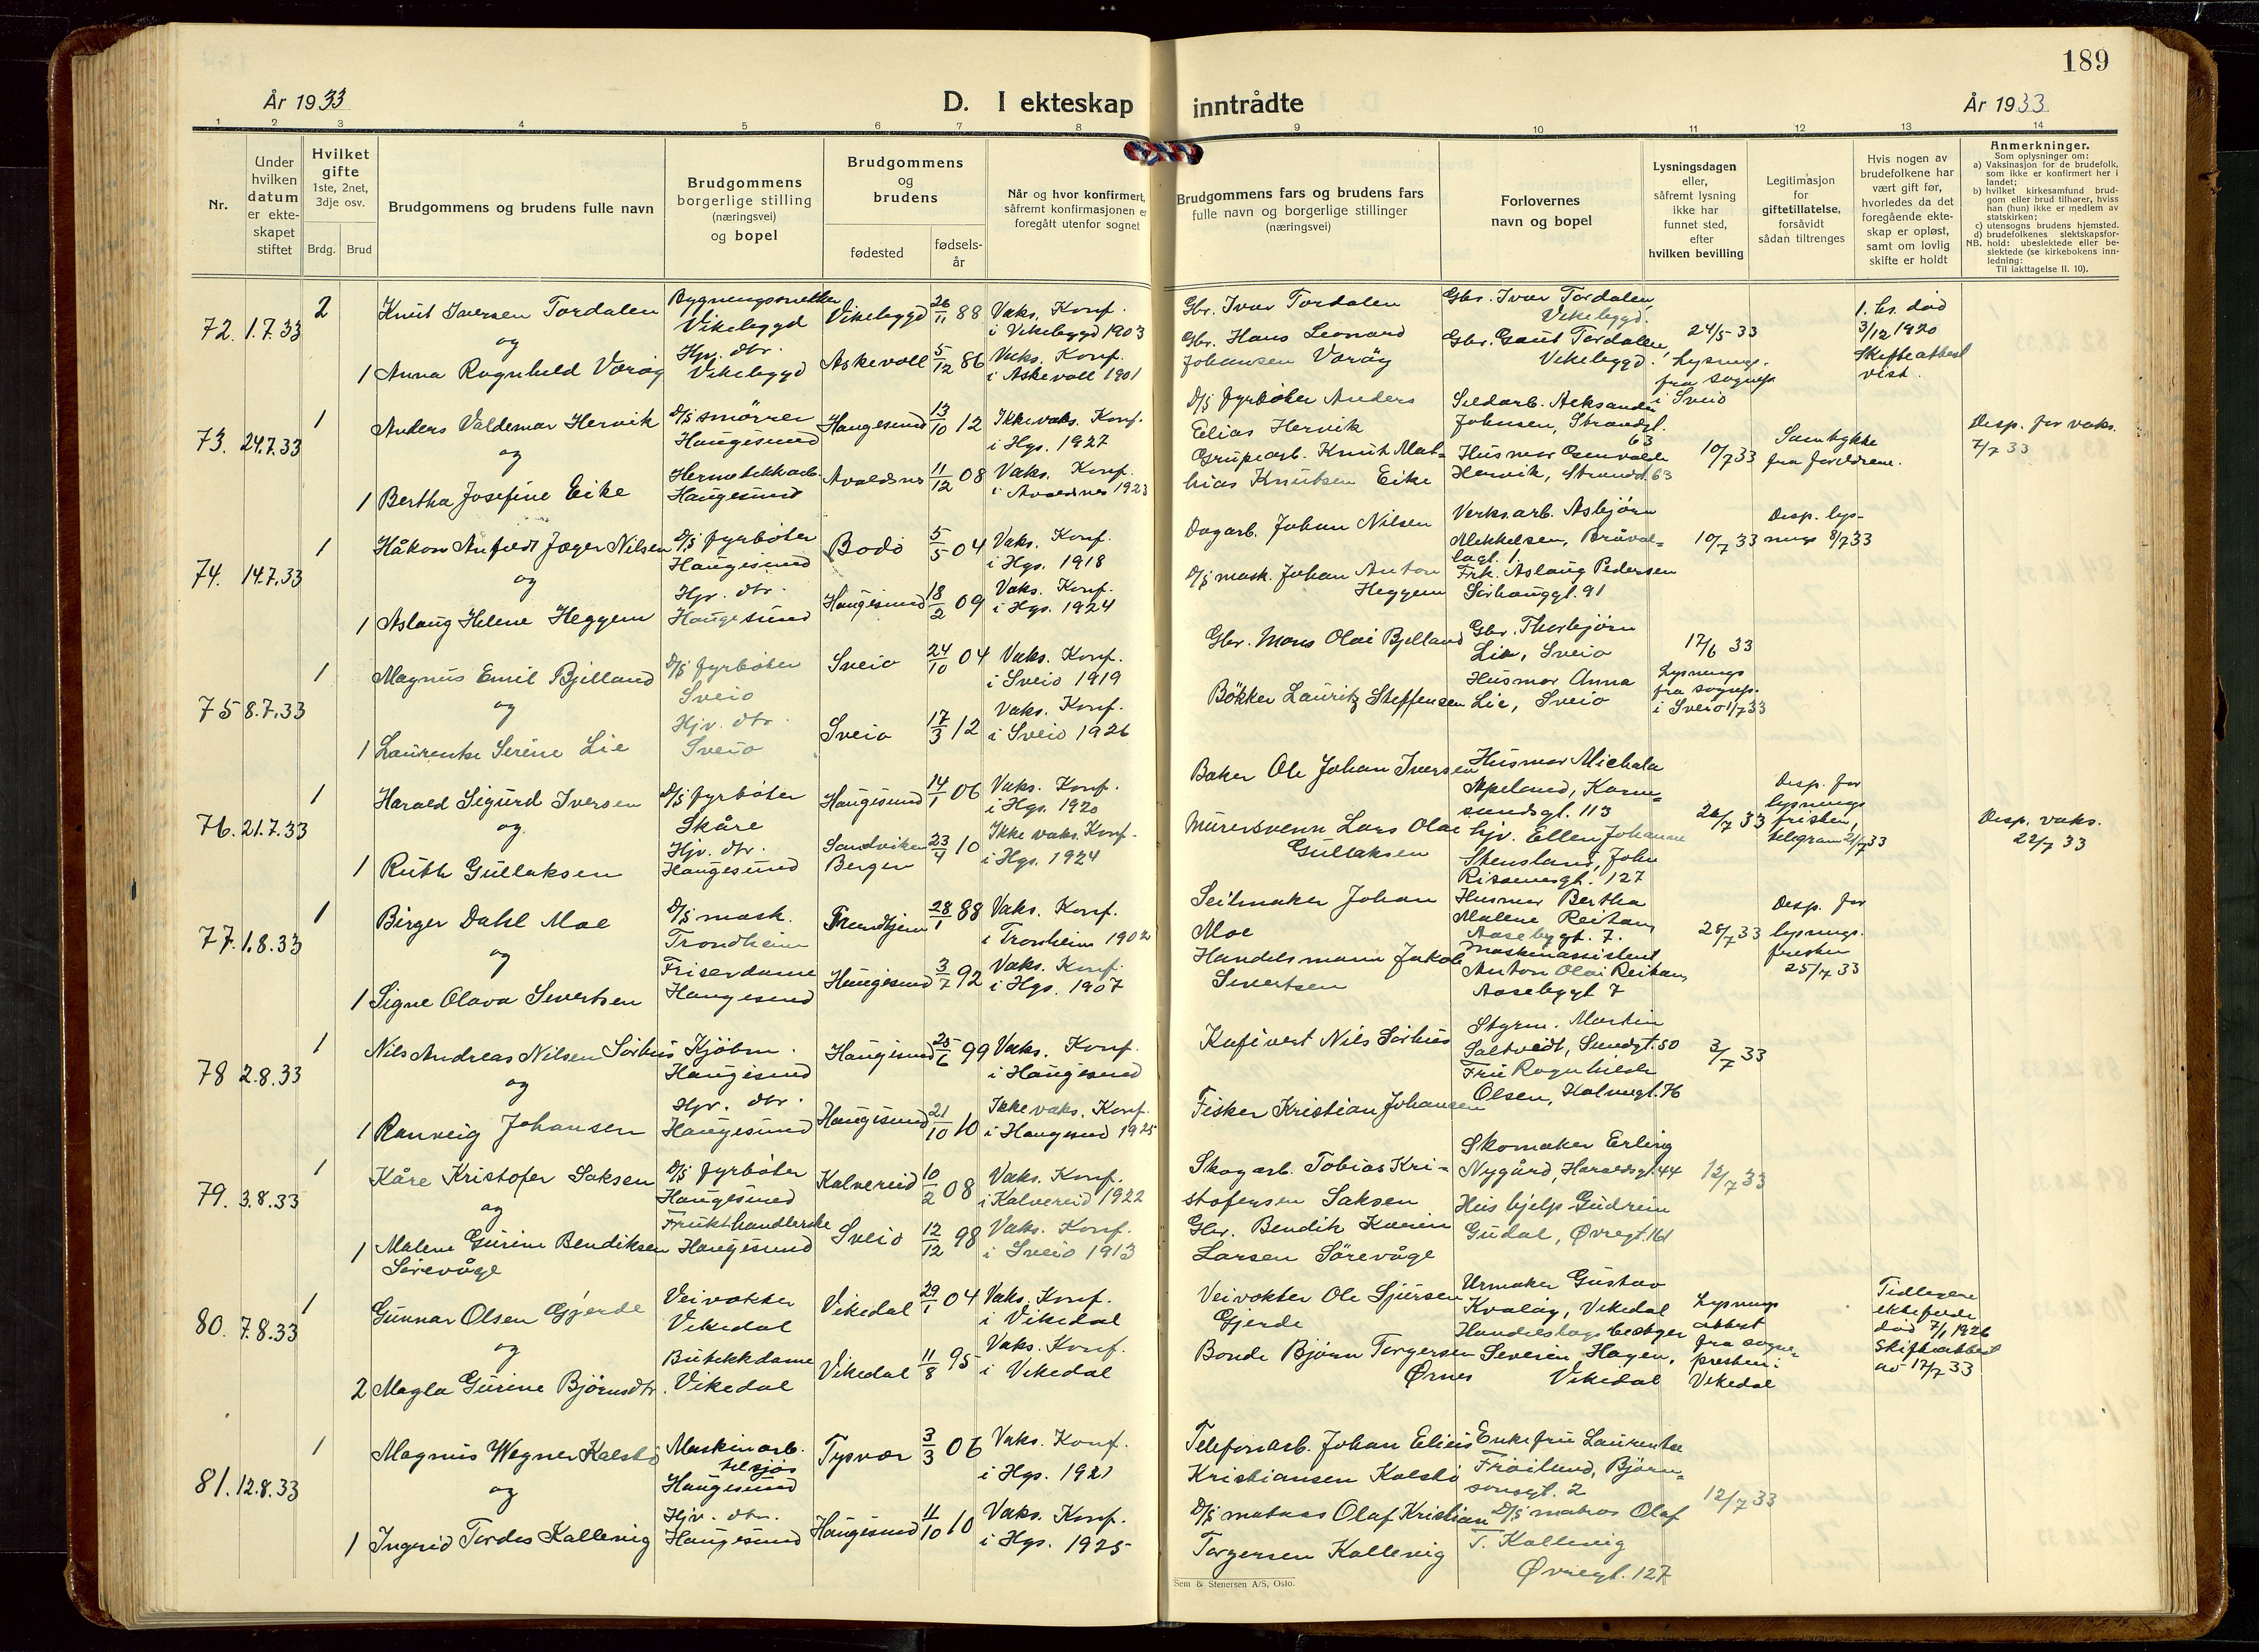 189
År 1933
D. I ekteskap inntrådte
År 1933
1 2 3 4 5 6 7 8 9 10 11 12 13 14
Nr.
Under hvilken datum er ekteskapet stiftet
Hvilket gifte 1ste, 2net, 3dje osv.
Brdg. Brud
Brudgommens og brudens fulle navn
Brudgommens borgerlige stilling (næringsvei) og bopel
Brudgommens og brudens
fødested
fødsels-år
Når og hvor konfirmert, såfremt konfirmasjonen er foregått utenfor sognet
Brudgommens fars og brudens fars fulle navn og borgerlige stillinger (næringsvei)
Forlovernes navn og bopel
Lysningsdagen eller, såfremt lysning ikke har funnet sted, efter hvilken bevilling
Legitimasjon for giftetillatelse, forsåvidt sådan tiltrenges
Hvis nogen av brudefolkene har vært gift før, hvorledes da det foregående ekteskap er opløst, samt om lovlig skifte er holdt
Anmerkninger.
Som oplysninger om:
a) Vaksinasjon for de brudefolk, som ikke er konfirmert her i landet;
b) hvilket kirkesamfund brudgom eller brud tilhører, hviss han (hun) ikke er medlem av statskirken;
c) utensogns brudens hjemsted.
d) brudefolkenes slektskapsforhold: ubeslektede eller beslektede (se kirkebokens innledning:
NB. Til iakttagelse II. 10).
72. 1.7.33
2 Knut Iversen Tordalen
Vikebygd
Vikebygd 26/11 88
Vaks. Konf. i Vikebygd 1903
Gbr. Ivar Tordalen
Gbr. Ivar Tordalen, Vikebygd.
og
1 Anna Ragnhild Varøy
Hjv. dtr. Vikebygd
Askevoll 5/12 86
Vaks. Konf. i Askevoll 1901
Gbr. Hans Leonard Johansen Varøy
Gbr. Gaut Tordalen, Vikebygd.
24/5 33 Lysnings. fra sognep. i Sveio
1. hs. død 3/12 1920 Skifteattest vist.
73. 24.7.33
1 Anders Valdemar Hervik
D/s smører Haugesund
Haugesund 13/10 12
Ikke vaks. Konf. i Hgs. 1927
D/s fyrbøter Anders Elias Hervik
Sildarb. Aleksander Johnsen, Strandgt. 63
og
1 Bertha Josefine Eike
Hermetikkarb. Haugesund
Avaldsnes 11/12 08
Vaks. Konf. i Avaldsnes 1923
Grubearb. Knut Mathias Knutsen Eike
Hervik, Strandgt. 63
10/7 33
Samtykke fra foreldrene.
Disp. for vaks. 7/7 33
74. 14.7.33
1 Håkon Anfeldt Jæger Nilsen
D/s fyrbøter Haugesund
Bodø 5/5 04
Vaks. Konf. i Hgs. 1918
Dagarb. Johan Nilsen
Verksarb. Asbjørn Mikkelsen, Bråvallagt. 1
og
1 Aslaug Helene Heggem
Hjv. dtr. Haugesund
Haugesund 18/2 09
Vaks. Konf. i Hgs. 1924
D/s mask. Johan Anton Heggem
Frk. Aslaug Pedersen Sørhauggt. 91
10/7 33
Disp. lysnings 8/7 33
75 8.7.33
1 Magnus Emil Bjelland
D/s fyrbøter Sveio
Sveio 24/10 04
Vaks. Konf. i Sveio 1919
Gbr. Mons Olai Bjelland
Gbr. Thorbjørn Lie, Sveio
og
1 Laurentse Serine Lie
Hjv. dtr. Sveio
Sveio 17/3 12
Vaks. Konf. i Sveio 1926
Bøkker Lauritz Steffensen
Husmor Anna Lie, Sveio
17/6 33 Lysnings fra sognep. i Sveio 1/7 33
76. 21.7.33
1 Harald Sigurd Iversen
D/s fyrbøter Skåre
Haugesund 14/1 06
Vaks. Konf. i Hgs. 1920
Baker Ole Johan Iversen
Husmor Michala Apeland, Karmsundsgt. 113
og
1 Ruth Gullaksen
Hjv. dtr. Haugesund
Sandviken Bergen 23/4 10
Ikke vaks. Konf. i Hgs. 1924
Murersvenn Lars Olai Gullaksen
Hjv. Ellen Johanne Stensland, John Rissensgt. 127
Disp. for lysnings fristen, telegram 21/7 33
Disp. vaks. 22/7 33
77. 1.8.33
1 Birger Dahl Moe
D/s mask. Trondheim
Trondhjem 28/1 88
Vaks. Konf. i Tronheim 1902
Seilmaker Johan Moe
Husmor Bertha Malene Reitan, Aasebygt. 7.
og
1 Signe Olava Sivertsen
Friserdame Haugesund
Haugesund 3/7 92
Vaks. Konf. i Hgs. 1907
Handelsmann Jakob Sivertsen
Maskinassistent Anton Olai Reitan, Aasebygt 7
28/7 33
Disp. for lysnings. fristen 25/7 33
78 2.8.33
1 Nils Andreas Nilsen Sørhus
Kjøbm. Haugesund
Haugesund 25/6 99
Vaks. Konf. i Haugesund
Nils Sørhus
Styrm. Martin Saltvedt, Sundgt. 50
og
1 Ranveig Johansen
Hjv. dtr. Haugesund
Haugesund 21/10 10
Ikke vaks. Konf. i Haugesund 1925
Fisker Kristian Johansen
Fru Ragnhilde Olsen, Kalvegt. 76
3/7 33
79. 3.8.33
1 Kåre Kristofer Saksen
D/s fyrbøter Haugesund
Kalvereid 10/2 08
Vaks. Konf. i Kalvereid 1922
Skogarb. Tobias Kristofersen Saksen
Skomaker Erling Nygård, Haraldsgt. 44
og
1 Malene Gurine Bendiksen Sørevåge
Frukthandlerske Haugesund
Sveio 12/12 98
Vaks. Konf. i Sveio 1913
Gbr. Bendik Larsen Sørevåge
Hushjelp Gudrun Gudal, Øvregt. 161
12/7 33
80. 7.8.33
1 Gunnar Olsen Gjerde
Veivokter Vikedal
Vikedal 29/1 04
Vaks. Konf. i Vikedal
Veivokter Ole Sjursen Gjerde
Urmaker Gustav Kvaløy, Vikedal
og
2 Magla Gurine Bjørnsdtr.
Butikkdame Vikedal
Vikedal 11/8 95
Vaks. Konf. i Vikedal
Bonde Bjørn Torgersen Ørnes
Severin Hagen, Vikedal
Lysnings attest fra sognepresten i Vikedal
Tidligere ektefelle død 7/1 1926 Skifteattest av 17/7 33
81. 12.8.33
1 Magnus Wegner Kalstø
Maskinarb. tilsjøs Haugesund
Tysvær 3/3 06
Vaks. Konf. i Hgs. 1921
Telefonarb. Johan Elias Kristiansen Kalstø
Enkefru Laurentse Frøiland, Bjørnsonsgt. 2
og
1 Ingrid Tordis Kallevig
Hjv. dtr. Haugesund
Haugesund 11/10 10
Vaks. Konf. i Hgs. 1925
D/s matros Olaf Kristian Torgersen Kallevig
D/s matros Olaf T. Kallevig Øvregt. 127
12/7 33
Sem & Stenersen A/S, Oslo.